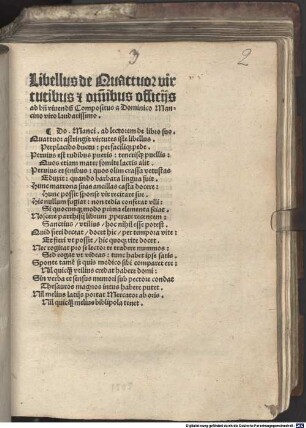 3
2
Libellus de Quattuor vir
tutibus & omnibus officijs
ad bñ viuendũ Compositus a Dominico Man
cino viro laudatissimo.
¶ Do. Manci. ad lectorem de libro suo.
Quattuor astringit virtutes iste libellus.
Perplacido ducens : perfacilique pede.
Peruius est rudibus pueris : teneris puellis:
Quos etiam mater fomite lactis alit.
Peruius et senibus : quos olim cassa vetustas
Edunt : quando barbara lingua fuit.
Hunc matrona suas ancillas casta docere:
Hunc possit sponse vir recitare sue.
Hic nullum fugiat : non tedia conferat vlli:
Si quicunque modo prima elementa sciat.
Noscere parthissi librum properate recentem:
Sanctius / vtilius / hoc nihil esse potest.
Quid fieri doceat / docet hic / per tempora vite:
Et fieri vt possit / hic quoque vite docet.
Nec rogitat pro se lector et tradere nummos:
Sed rogat vt videas : tunc habet ipse satis.
Sponte tamē si quis modico sibi comparet ere:
Nil quicque vtilius credat habere domi:
Sin verba et sensus memori sub pectore condat
Thesauros magnos intus habere putet.
Nil melius latijs portat Mercator ab oris.
Nil quicque melius bibliopola tenet.